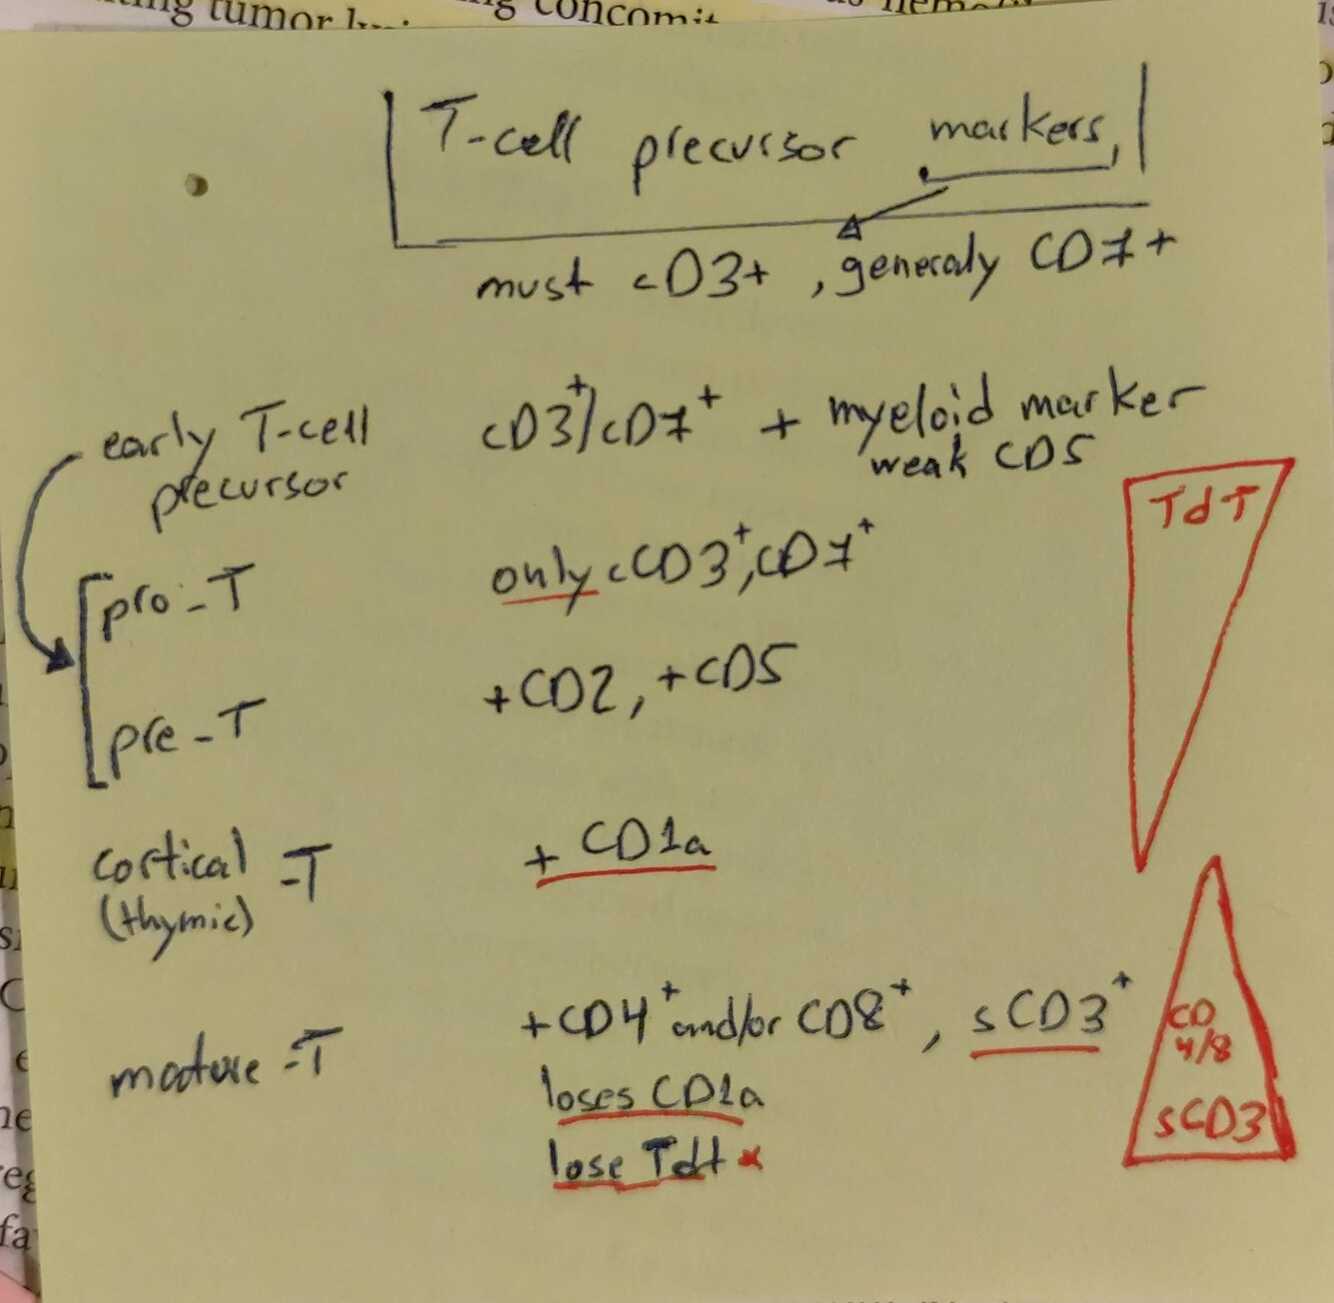 T-cell precursor markers,
must cD3+, generaly CD7+
early T-cell precursor
cD3+/cD7+ + myeloid marker
weak CD5
TdT
pro-T
only cCD3+, cD7+
pre-T
+CD2, +CD5
cortical -T
(thymic)
+ CD1a
mature -T
+CD4+ and/or CD8+, sCD3+
loses CD1a
lose Tdt *
CD
4/8
sCD3